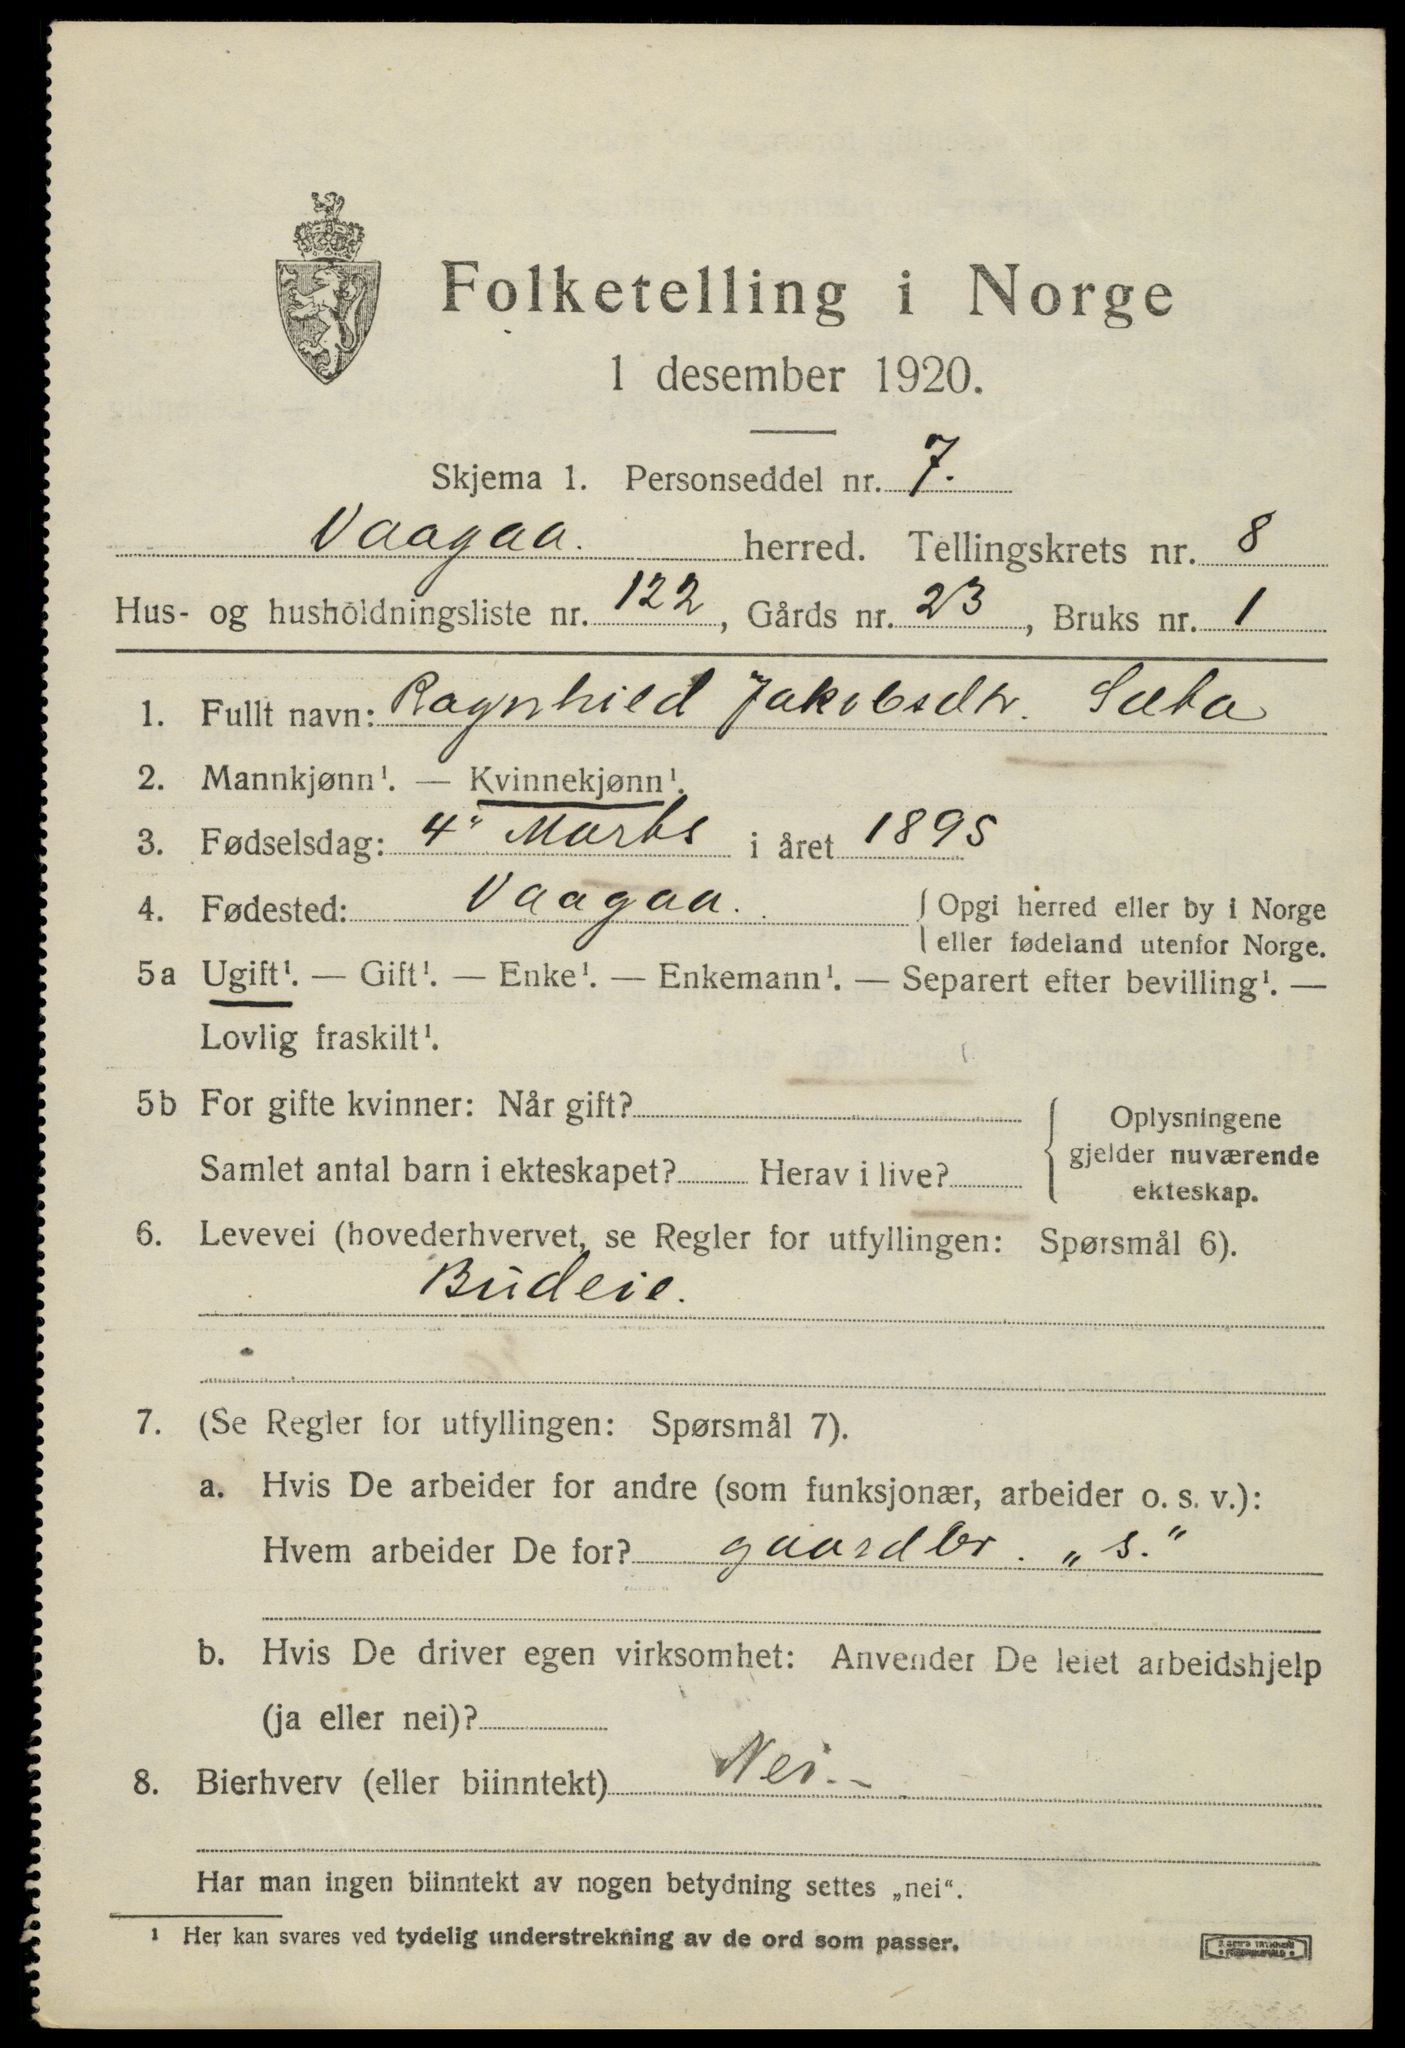 Folketelling i Norge
1 desember 1920.
Skjema 1. Personseddel nr. 7.
Vaagaa. herred. Tellingskrets nr. 8
Hus- og husholdningsliste nr. 122, Gårds nr. 23, Bruks nr. 1
1. Fullt navn: Ragnhild Jakobsdtr. Sæta
2. Mannkjønn¹. — Kvinnekjønn¹.
3. Fødselsdag: 4" Marts i året 1895
4. Fødested: Vaagaa. { Opgi herred eller by i Norge
eller fødeland utenfor Norge.
5a Ugift¹. — Gift¹. — Enke¹. — Enkemann¹. — Separert efter bevilling¹. —
Lovlig fraskilt¹.
5b For gifte kvinner: Når gift?
Samlet antal barn i ekteskapet? Herav i live?
{ Oplysningene
gjelder nuværende
ekteskap.
6. Levevei (hovederhvervet, se Regler for utfyllingen: Spørsmål 6).
Budeie.
7. (Se Regler for utfyllingen: Spørsmål 7).
a. Hvis De arbeider for andre (som funksjonær, arbeider o. s. v.):
Hvem arbeider De for? gaardbr. „s."
b. Hvis De driver egen virksomhet: Anvender De leiet arbeidshjelp
(ja eller nei)?
8. Bierhverv (eller biinntekt) Nei.-
Har man ingen biinntekt av nogen betydning settes „nei“.
¹ Her kan svares ved tydelig understrekning av de ord som passer.